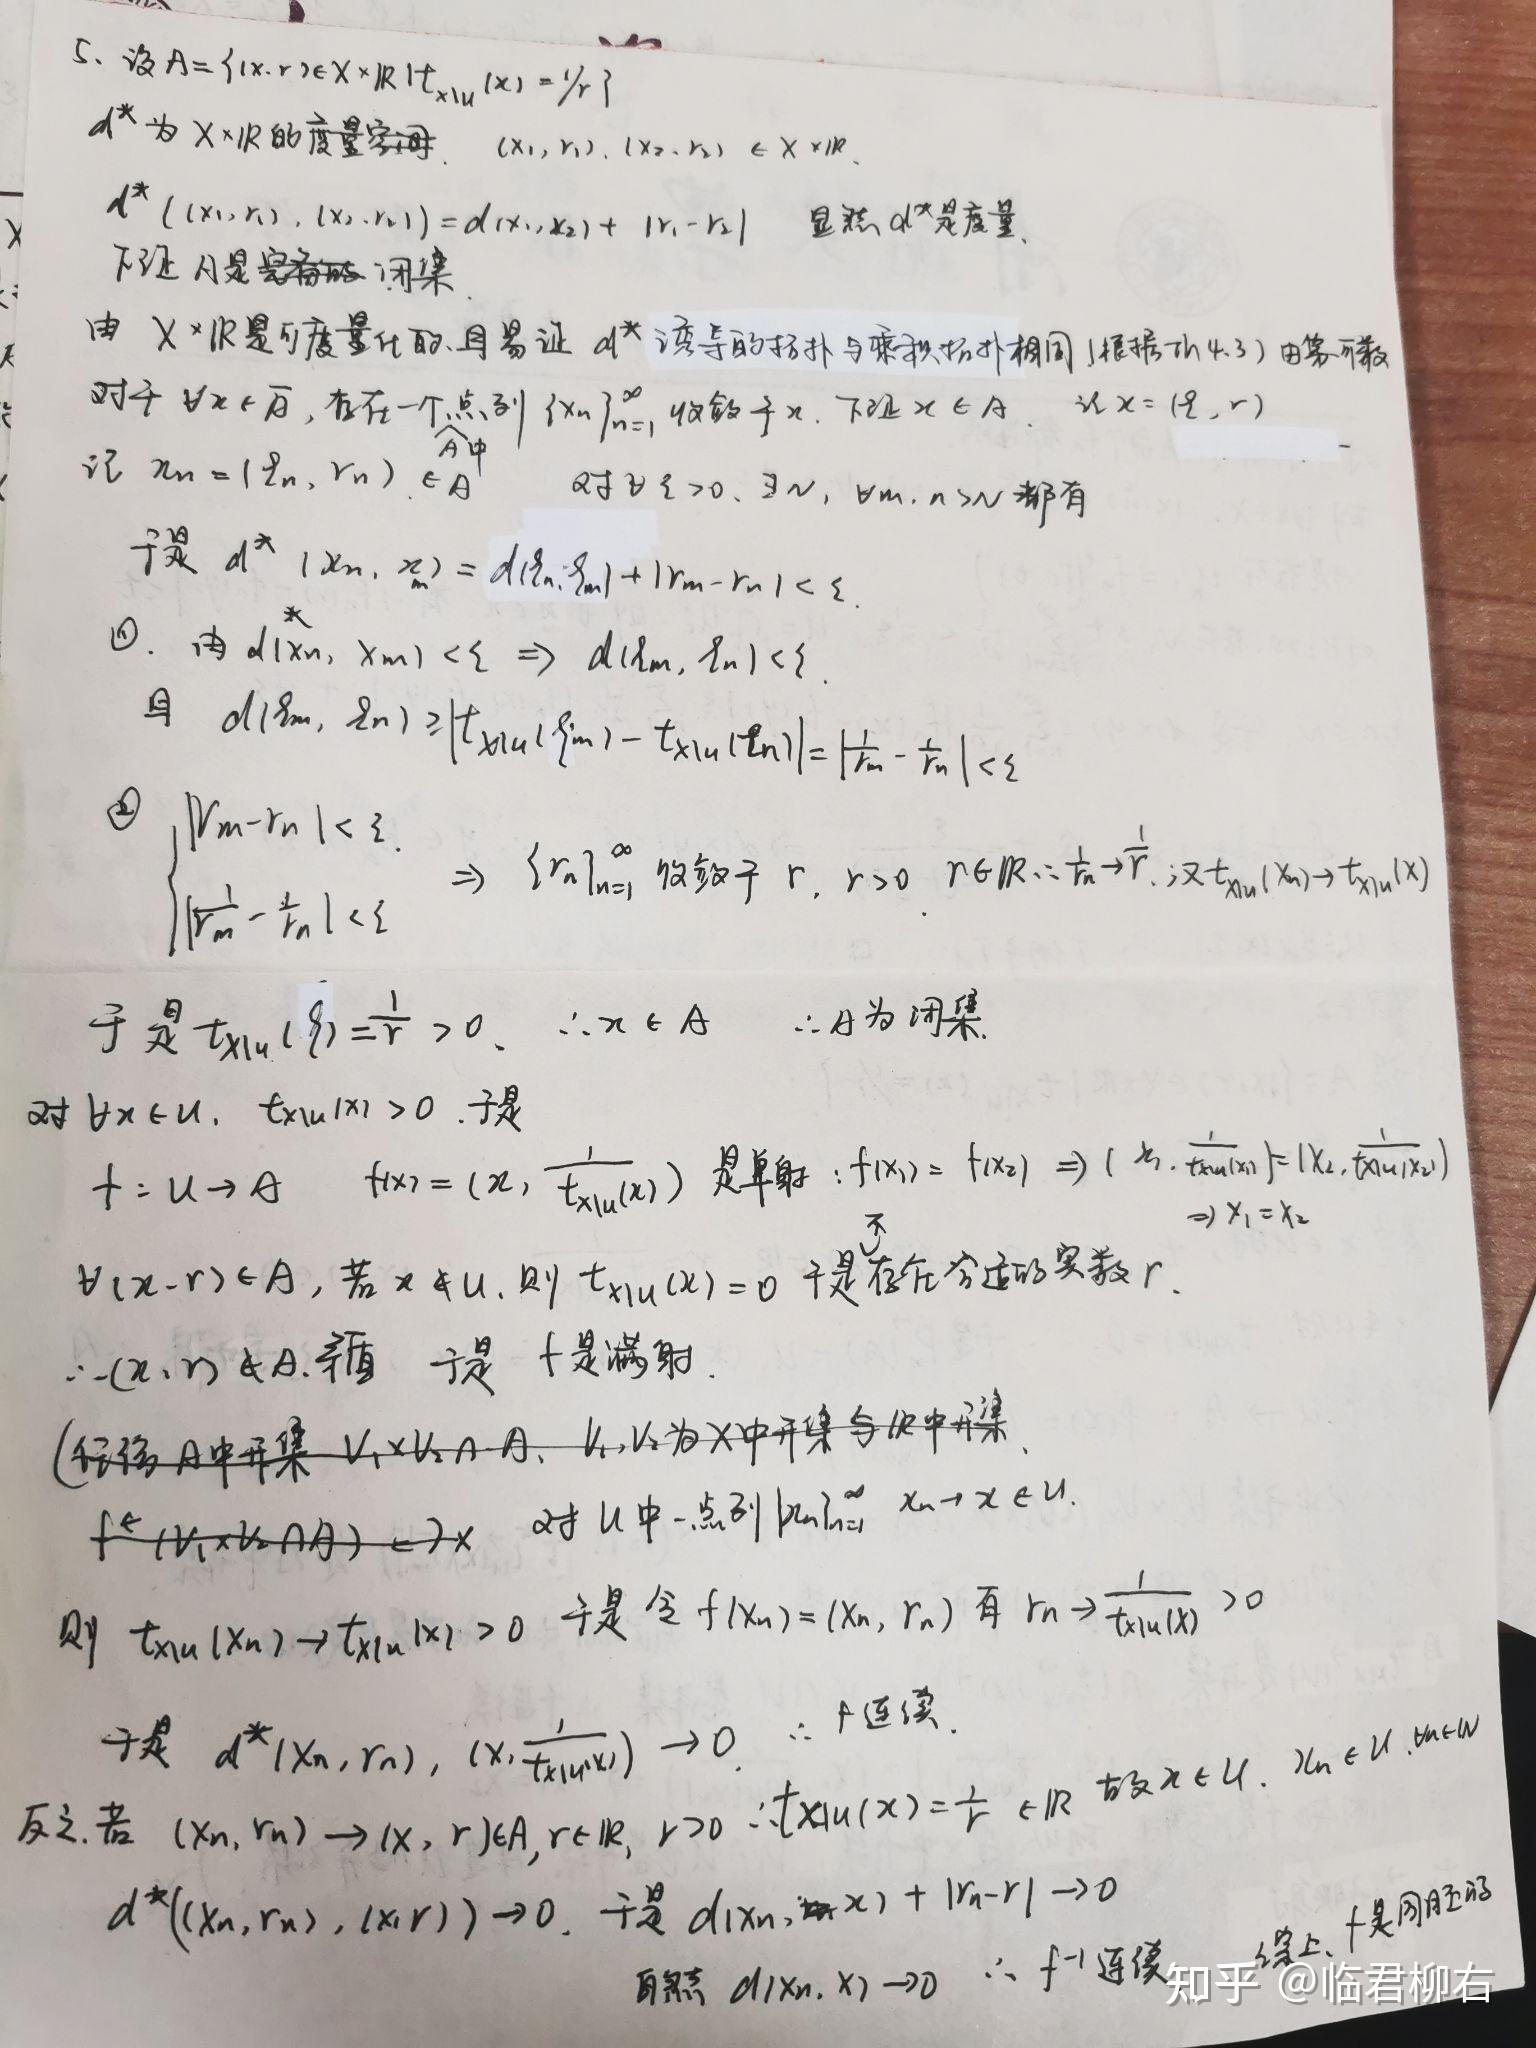 5、设A={(x,r)∈X×ℝ|t_{X\U}(x)=1/r}
d*为X×ℝ的度量 (x₁,r₁),(x₂,r₂)∈X×ℝ.
d*((x₁,r₁),(x₂,r₂))=d(x₁,x₂)+|r₁-r₂| 显然d*是度量.
下证A是闭集.
由X×ℝ是可度量化的、且易证d*诱导的拓扑与乘积拓扑相同(根据Th4.3)由第一可数
对于∀x∈Ā,存在一个A中点列{xₙ}ₙ₌₁^∞收敛于x.下证x∈A. 记x=(ξ,r)
记xₙ=(ξₙ,rₙ)∈A 对∀ε>0、∃N,∀m,n>N都有
于是d*(xₙ,xₘ)=d(ξₙ,ξₘ)+|rₘ-rₙ|<ε.
①.由d*(xₙ,xₘ)<ε⇒d(ξₘ,ξₙ)<ε.
且d(ξₘ,ξₙ)≥|t_{X\U}(ξₘ)-t_{X\U}(ξₙ)|=|1/rₘ-1/rₙ|<ε
② {|rₘ-rₙ|<ε. |1/rₘ-1/rₙ|<ε ⇒{rₙ}ₙ₌₁^∞收敛于r,r>0.r∈ℝ∴1/rₙ→1/r.又t_{X\U}(xₙ)→t_{X\U}(x)
于是t_{X\U}(ξ)=1/r>0、∴x∈A ∴A为闭集.
对∀x∈U,t_{X\U}(x)>0.于是
f=U→A f(x)=(x,1/t_{X\U}(x))是单射:f(x₁)=f(x₂)⇒(x₁,1/t_{X\U}(x₁))=(x₂,1/t_{X\U}(x₂))
⇒x₁=x₂
∀(x,r)∈A,若x∉U,则t_{X\U}(x)=0于是不存在合适的实数r.
∴(x,r)∉A.矛盾 于是f是满射.
(任给A中开集V₁×V₂∩A、V₁,V₂为X中开集与ℝ中开集.
f^←(V₁×V₂∩A) 对U中一点列{xₙ}ₙ₌₁^∞ xₙ→x∈U.
则t_{X\U}(xₙ)→t_{X\U}(x)>0于是令f(xₙ)=(xₙ,rₙ)有rₙ→1/t_{X\U}(x)>0
于是d*(xₙ,rₙ),(x,1/t_{X\U}(x))→0.∴f连续.
反之.若(xₙ,rₙ)→(x,r)∈A,r∈ℝ,r>0∴t_{X\U}(x)=1/r∈ℝ故x∈U.xₙ∈U,∀n∈ℕ
d*((xₙ,rₙ),(x,r))→0.于是d(xₙ,x)+|rₙ-r|→0
自然d(xₙ,x)→0∴f⁻¹连续 综上、f是同胚的
知乎 @临君柳右